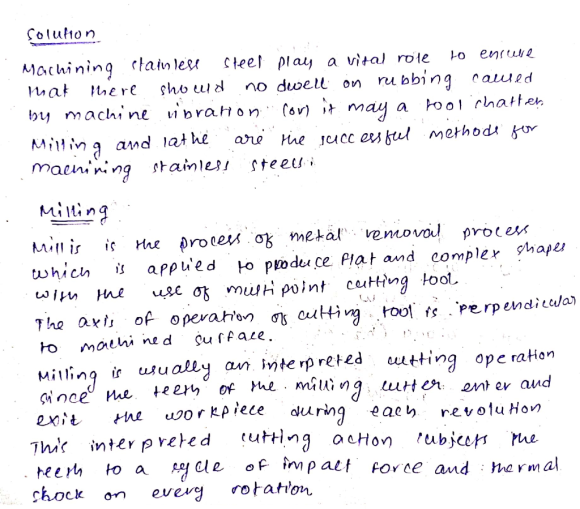 Solution
Machining stainless steel play a vital role to ensure
that there should no dwell on rubbing caused
by machine vibration (or) it may a tool chatter.
Milling and lathe are the successful methods for
machining stainless steels.
Milling
Mill is is the process of metal removal process
which is applied to produce flat and complex shapes
with the use of multi point cutting tool.
The axis of operation of cutting tool is perpendicular
to machined surface.
Milling is usually an interpreted cutting operation
since the teeth of the milling cutter enter and
exit the workpiece during each revolution
This interpreted cutting action subjects the
teeth to a cycle of impact force and thermal
shock on every rotation